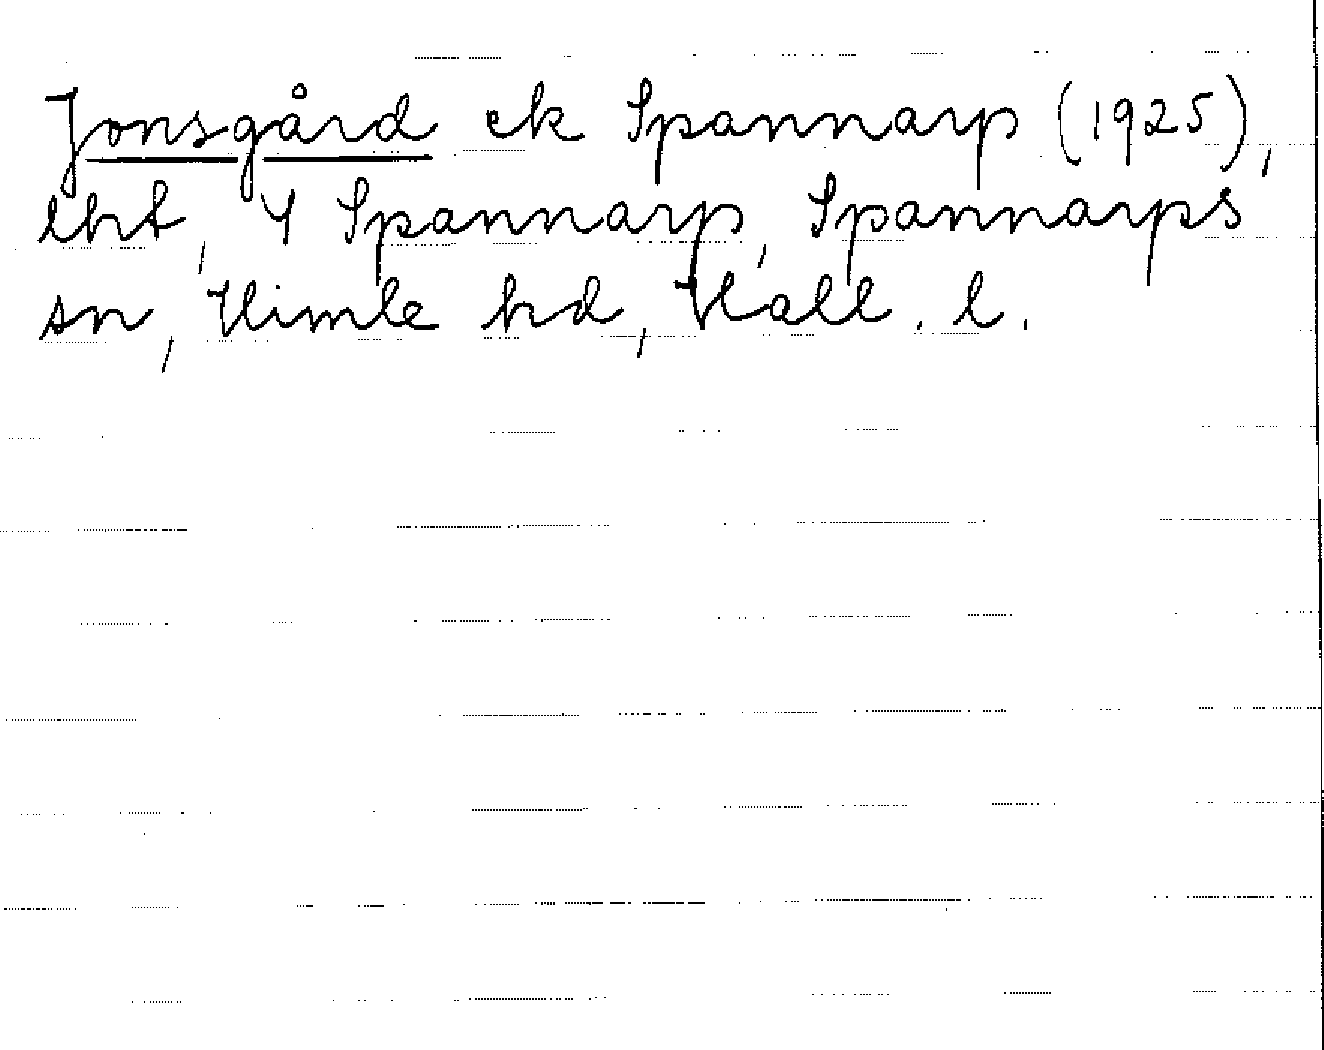 Jonsgård ek Spannarp (1925),
lht, 4 Spannarp, Spannarps
sn, Himle hd, Hall. l.